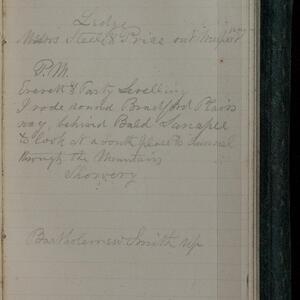 Ledge
Messrs Steele & Price out
P.M.
Everett & Party Levelling
I rode round Bradford Plain
way, behind Bald Sunapee
to look at a South place to tunnel
through the Mountain
Showery
Bartholomew Smith up